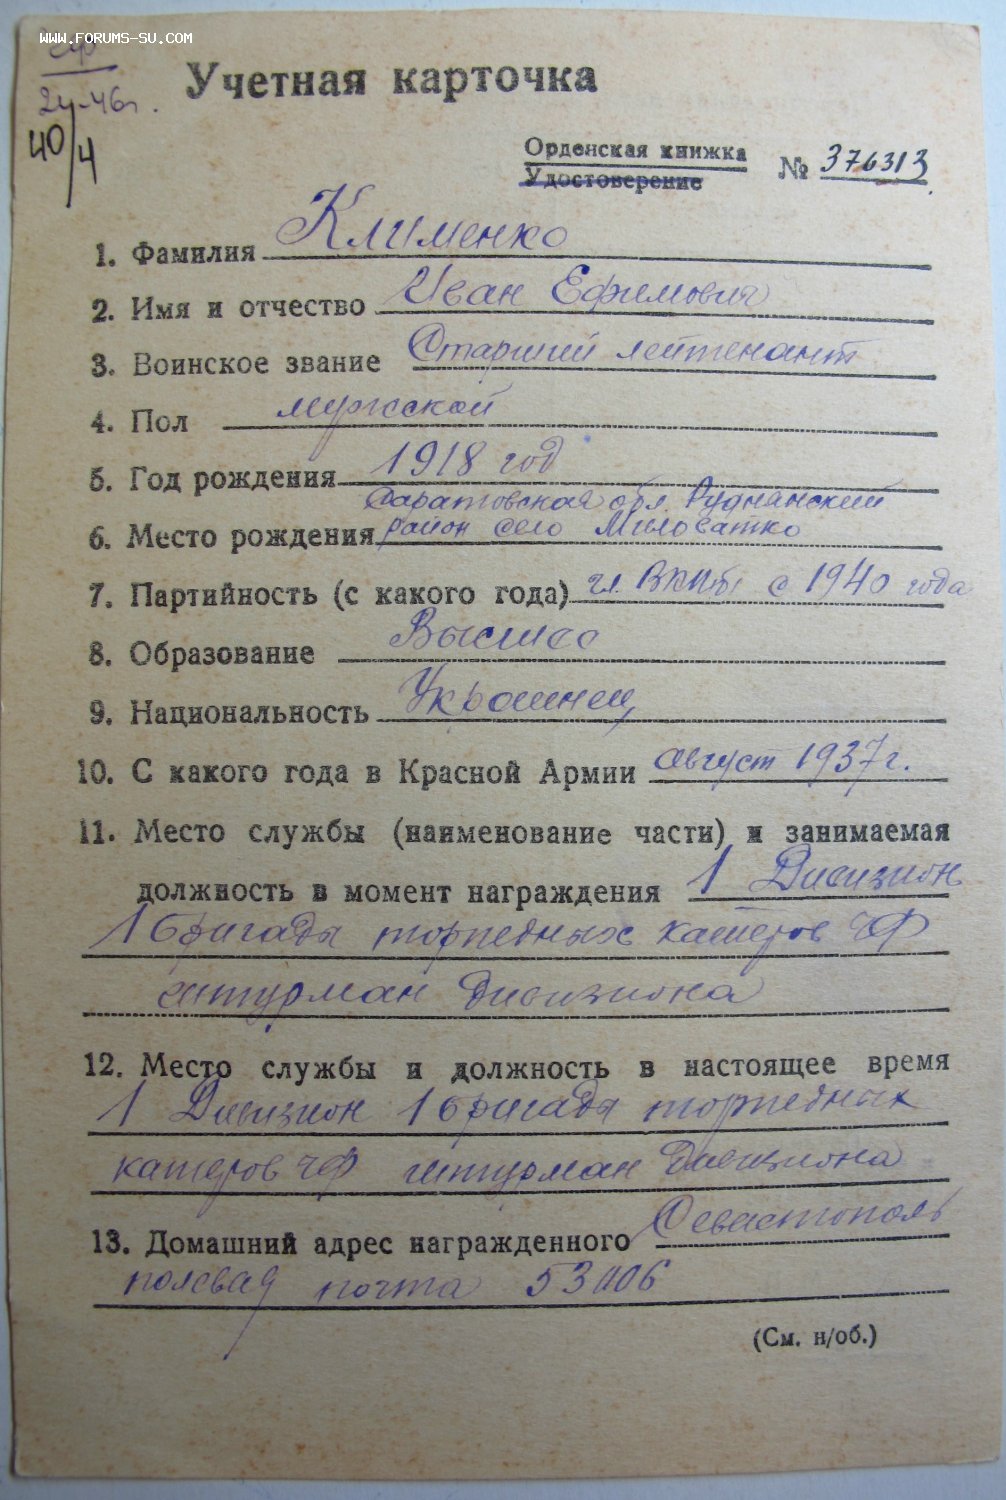 WWW.FORUMS-SU.COM
24-46г.
40/4
Учетная карточка
Орденская книжка
Удостоверение
№ 376313
1. Фамилия Клименко
2. Имя и отчество Иван Ефимович
3. Воинское звание Старший лейтенант
4. Пол мужской
5. Год рождения 1918 год
Саратовская обл. Руднянский
6. Место рождения район село Миловатко
7. Партийность (с какого года) чл. ВКПб с 1940 года
8. Образование Высшее
9. Национальность Украинец
10. С какого года в Красной Армии август 1937 г.
11. Место службы (наименование части) и занимаемая
должность в момент награждения 1 Дивизион
1 бригады торпедных катеров ЧФ
штурман дивизиона
12. Место службы и должность в настоящее время
1 Дивизион 1 бригада торпедных
катеров ЧФ штурман Дивизиона
13. Домашний адрес награжденного Севастополь
полевая почта 53006
(См. н/об.)